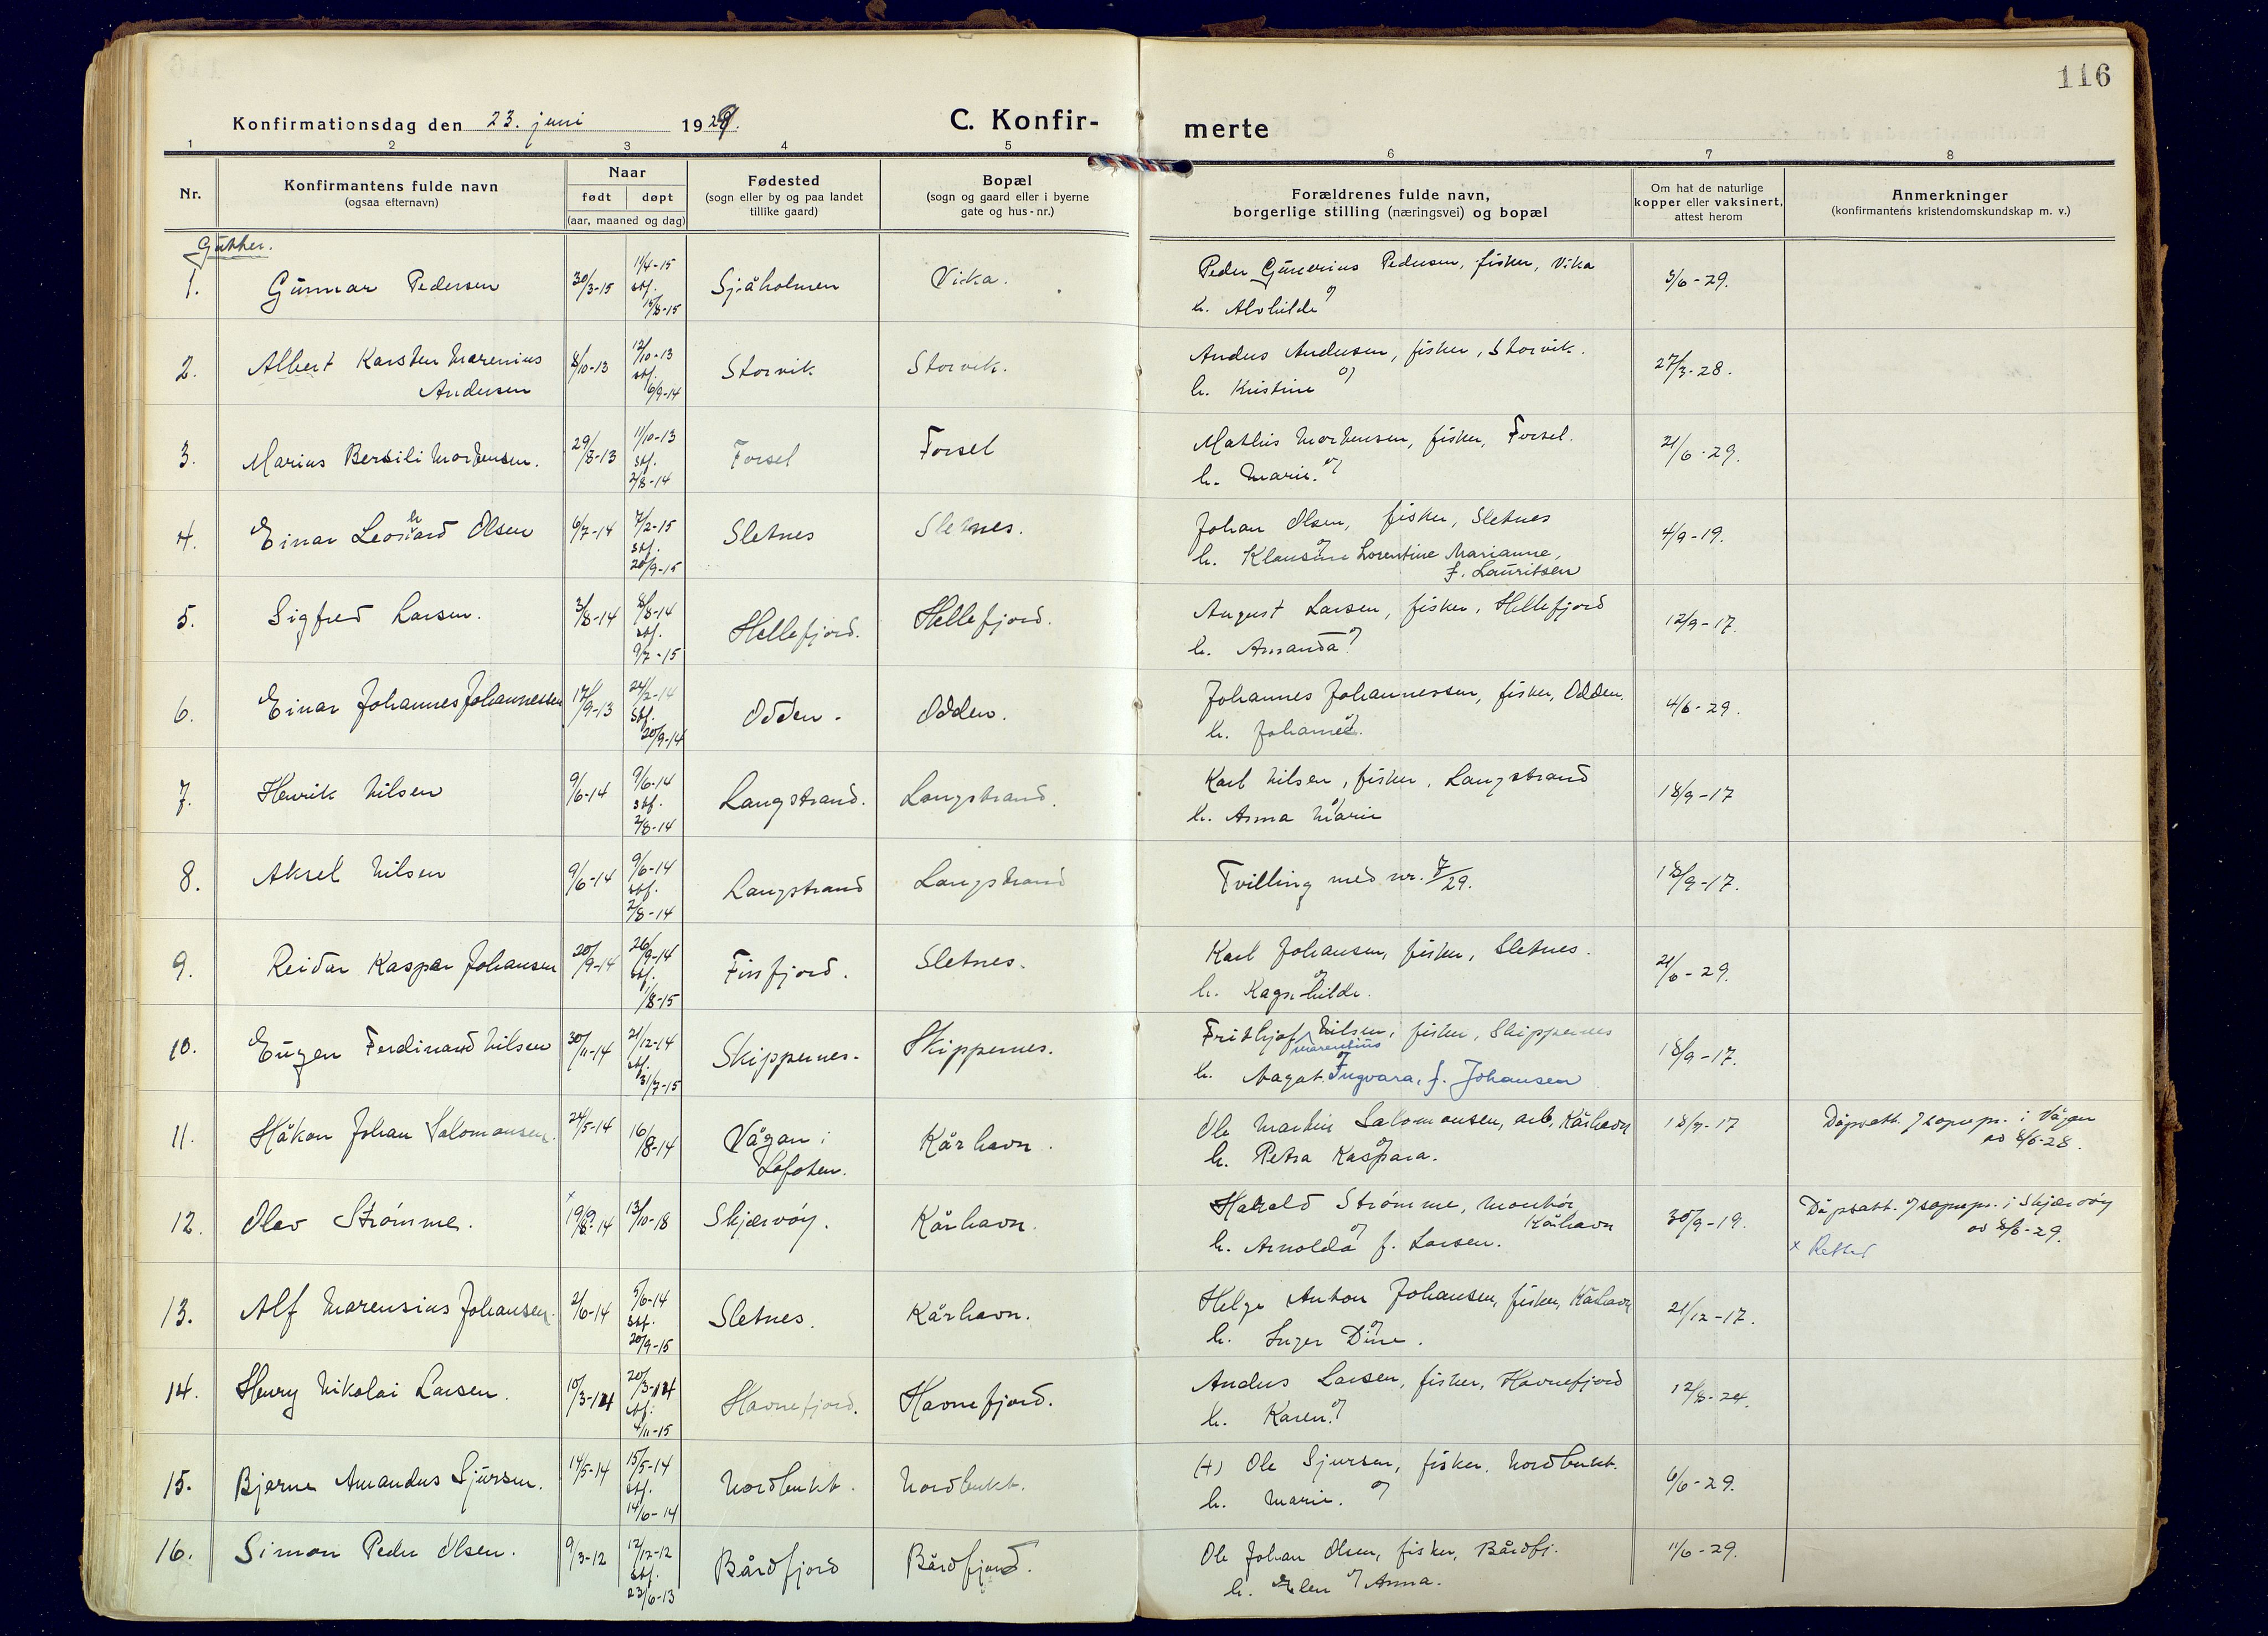 116
Konfirmationsdag den 23. juni 1929.
C. Konfir-
merte
1 2 3 4 5 6 7 8
Nr.
Konfirmantens fulde navn
(ogsaa efternavn)
Naar
født døpt
(aar, maaned og dag)
Fødested
(sogn eller by og paa landet
tillike gaard)
Bopæl
(sogn og gaard eller i byerne
gate og hus-nr.)
Forældrenes fulde navn,
borgerlige stilling (næringsvei) og bopæl
Om hat de naturlige
kopper eller vaksinert,
attest herom
Anmerkninger
(konfirmantens kristendomskundskap m. v.)
Gutter.
1. Gunnar Pedersen 30/3-15 11/4-15 stf. 15/8-15 Sjåholmen Vika. Peder Gunerius Pedersen, fisker, Vika 5/6-29.
og
h. Alvhilde
2. Albert Karsten Marenius 8/10-13 12/10-13 stf. 6/9-14 Storvik Storvik. Anders Andersen, fisker, Storvik. 27/3-28.
Andersen og
h. Kristine
3. Marius Bersili Mortensen. 29/8-13 11/10-13 stf. 2/8-14 Forsel Forsel Mathis Mortensen, fisker, Forsel. 21/6-29.
og
h. Marie.
4. Einar Leonhard Olsen 6/7-14 7/2-15 stf. 20/9-15 Sletnes Sletnes. Johan Olsen, fisker, Sletnes 4/9-19.
og
h. Klausine Lorentine Marianne,
f. Lauritsen
5. Sigfred Larsen. 3/8-14 8/8-14 stf. 9/7-15 Hellefjord. Hellefjord. August Larsen, fisker, Hellefjord 12/9-17.
og
h. Amanda
6. Einar Johannes Johannessen 17/9-13 24/2-14 stf. 20/9-14 Odden. Odden. Johannes Johannessen, fisker, Odden. 4/6-29.
og
h. Johanne.
7. Henrik Nilsen 9/6-14 9/6-14 stf. 2/8-14 Langstrand. Langstrand. Karl Nilsen, fisker, Langstrand 18/9-17
og
h. Anna Marie
8. Aksel Nilsen 9/6-14 9/6-14 stf. 2/8-14 Langstrand Langstrand Tvilling med nr. 7/29. 18/9-17.
9. Reidar Kaspar Johansen 20/9-14 26/9-14 stf. 1/8-15 Finfjord. Sletnes. Karl Johansen, fisker, Sletnes. 21/6-29.
og
h. Ragnhilde.
10. Eugen Ferdinand Nilsen 30/11-14 21/12-14 stf. 31/7-15 Skippernes. Skippernes. Fridthjof Nilsen, fisker, Skippernes 18/9-17.
Marentius
og
h. Aagot Ingvara, f. Johansen
11. Håkon Johan Salomonsen. 24/5-14 16/8-14 Vågan i Kårhavn. Ole Martin Salomonsen, arb, Kårhavn 18/9-17 Dåpsatt. fra sognepr. i Vågan
Lofoten. og av 8/6-28.
h. Petra Kaspara.
12. Olav Strømme. × 19/8-14 13/10-18 Skjærvøy. Kårhavn. Harald Strømme, montør 30/9-19. Dåpsatt. fra sognepr. i Skjærvøy
Kårhavn av 8/6-29.
og
h. Arnolda f. Larsen. × Rettet
13. Alf Marensius Johansen. 2/6-14 5/6-14 stf. 20/9-15 Sletnes. Kårhavn. Helge Anton Johansen, fisker, Kårhavn 21/12-17.
og
h. Inger Dine.
14. Henry Nikolai Larsen. 10/3-14 20/3-14 stf. 4/11-15 Havnefjord. Havnefjord. Anders Larsen, fisker, Havnefjord 12/8-24.
og
h. Karen.
15. Bjarne Amandus Sjursen. 14/5-14 15/5-14 stf. 14/6-14 Nordbukt. Nordbukt. (+) Ole Sjursen, fisker. Nordbukt. 6/6-29.
og
h. Marie.
16. Simon Peder Olsen. 9/3-12 12/12-12 stf. 23/6-13 Bårdfjord Bårdfjord. Ole Johan Olsen, fisker, Bårdfj. 11/6-29.
og
h. Elen Anna.